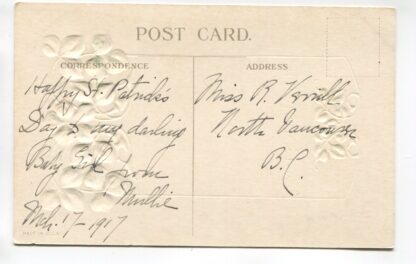 POST CARD.
CORRESPONDENCE
ADDRESS
Happy St. Patrick's
Day to my darling
Baby Girl from
Mullie
Mch. 17 - 1917
Miss R. Verrill
North Vancouver
B.C.